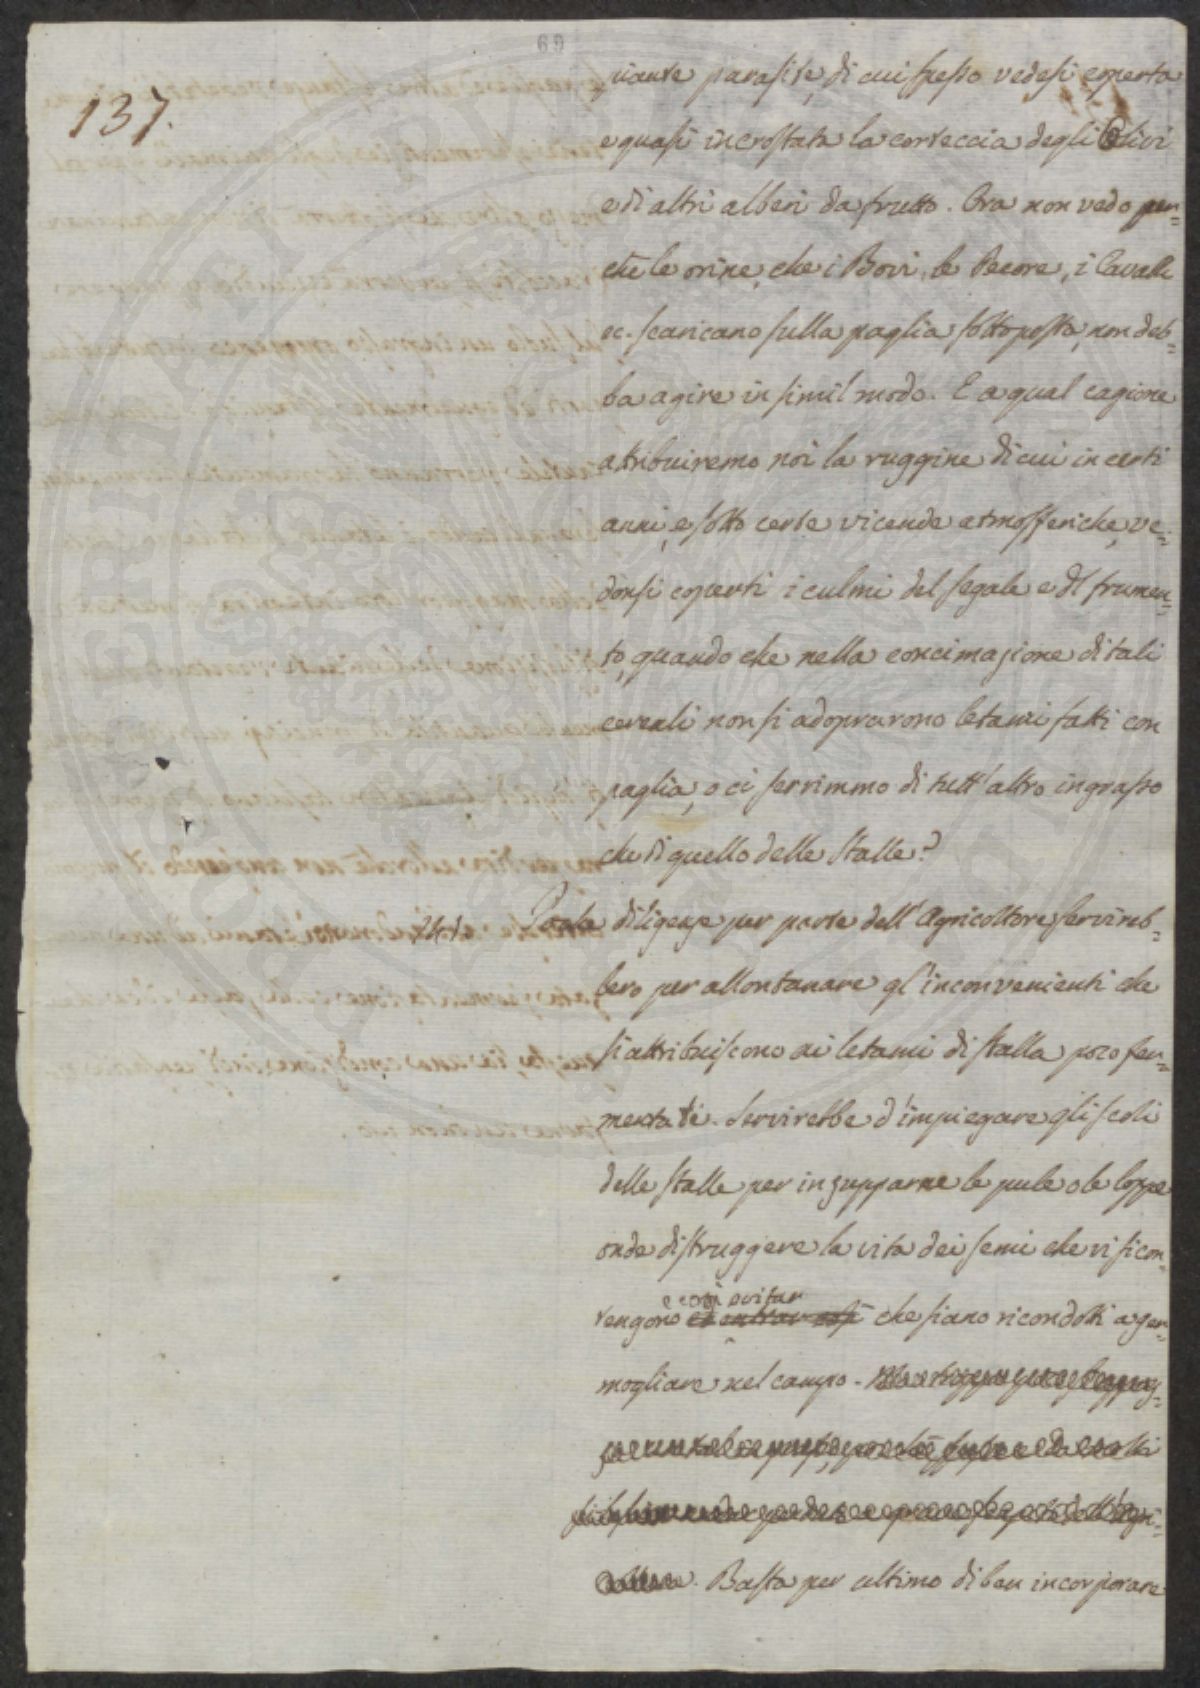 69
137.
piante parasite, di cui spesso vedesi coperta
e quasi incrostata la corteccia degli Olivi
e di altri alberi da frutto. Ora non vedo per-
chè le orine, che i Bovi, le Pecore, i Cavalli
ec. scaricano sulla paglia sottoposta, non deb-
ba agire in simil modo. E a qual cagione
attribuiremo noi la ruggine di cui in certi
anni, e sotto certe vicende atmosferiche, ve-
donsi coperti i culmi del segale e del frumen-
to, quando che nella concimazione di tali
cereali non si adoprarono letami fatti con
paglia, o ci servimmo di tutt'altro ingrasso
che di quello delle Stalle?
241. Poche diligenze per parte dell'Agricoltore servireb-
bero per allontanare gl'inconvenienti che
si attribuiscono ai letami di stalla poco fer-
mentati. Servirebbe d'impiegare gli scoli
delle stalle per inzupparne le pule o le loppe
onde distruggere la vita dei semi che vi si con-
e così evitar
tengono che siano ricondotti a ger-
mogliare nel campo.
Basta per ultimo di ben incorporare